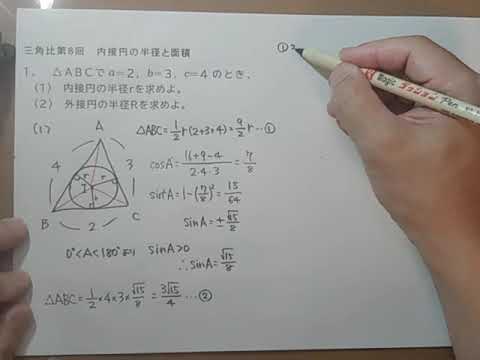 三角比第8回　内接円の半径と面積
1.　△ABCでa=2，b=3，c=4のとき，
(1)　内接円の半径rを求めよ。
(2)　外接円の半径Rを求めよ。
(1)
A
4
3
r
r
I
r
B
2
C
△ABC=1/2 r(2+3+4)=9/2 r …①
cosA=(16+9-4)/(2·4·3)=7/8
sin²A=1-(7/8)²=15/64
sinA=±√15/8
0°<A<180°より　sinA>0
∴sinA=√15/8
△ABC=1/2×4×3×√15/8=3√15/4 …②
①,
Magic
Pen